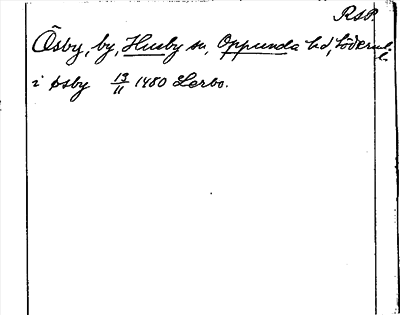 RSP.
Ösby, by, Husby sn, Oppunda hd, Söderml.
i øsby 13/11 1480 Lerbo.